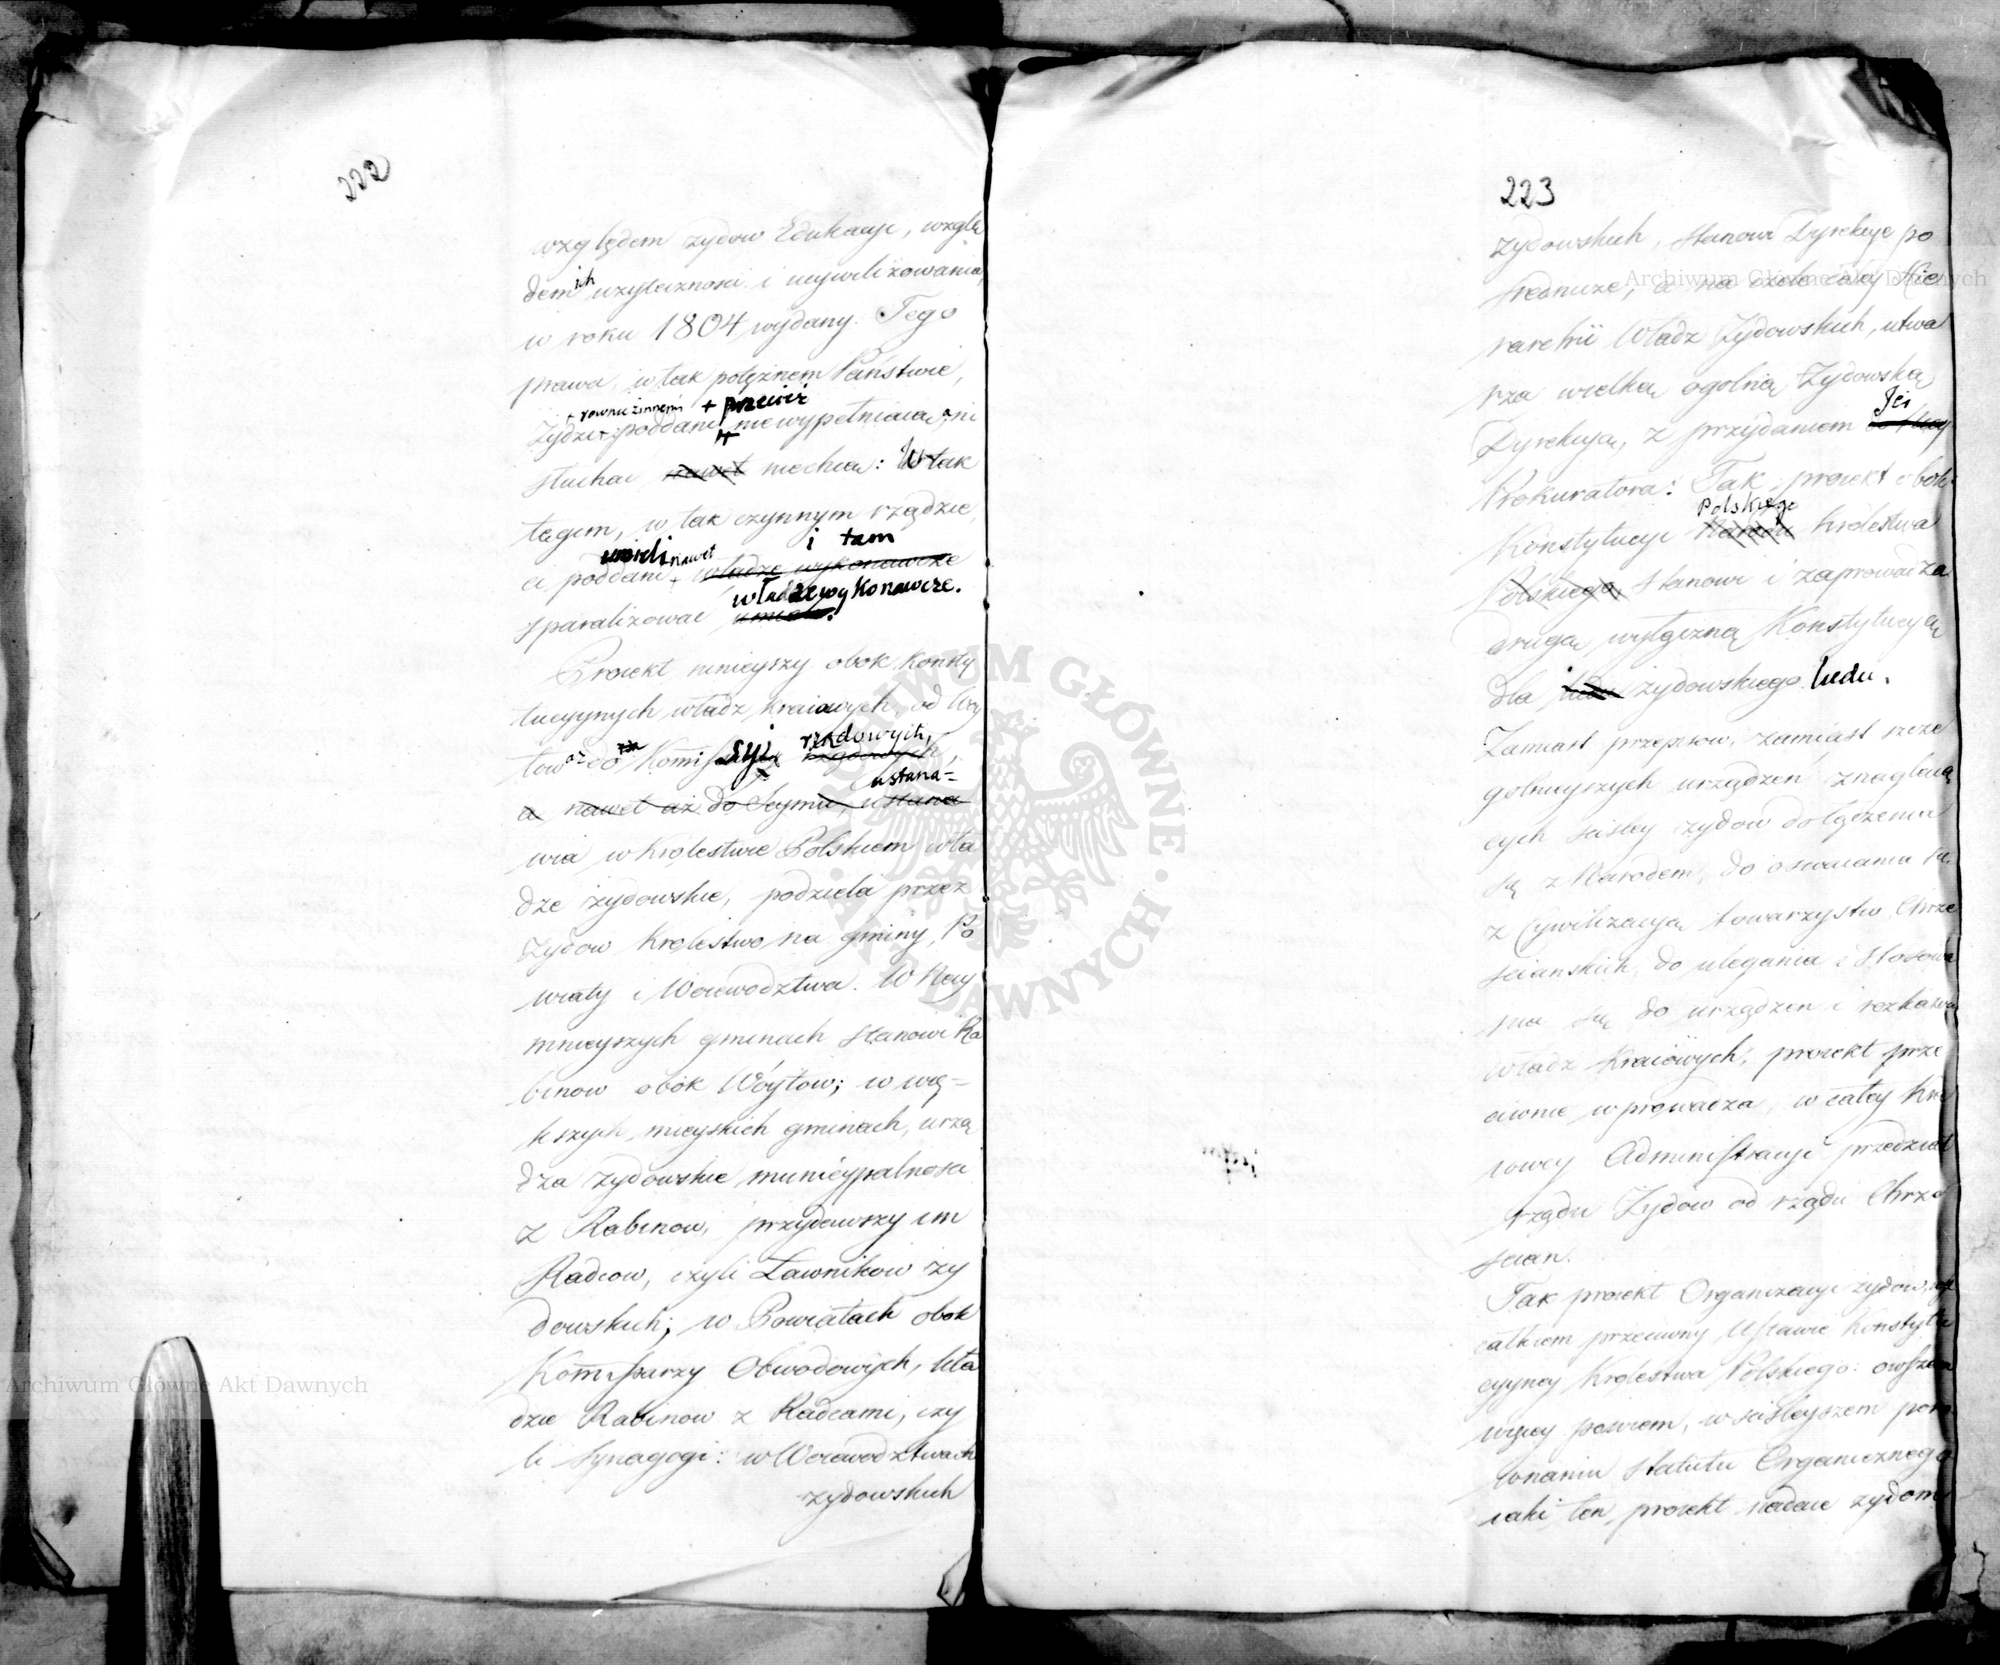 222
względem żydow Edukacyi, wzglę
dem ich użyteczności i ucywilizowania,
w roku 1804 wydany. Tego
prawa, w tak potężnem Państwie,
+ rowni z innemi + przecież
Żydzi poddani nie wypełniaią, ani
słuchać nawet niechcą: W tak
tęgim, w tak czynnym rządzie,
umieli nawet i tam
ci poddani władze wykonawcze
władze wykonawcze.
sparaliżować umieli.
Proiekt ninieyszy obok Konsty
tucyynych władz kraiowych, od Wóy
rządowych,
tow aż do Kommissyi
ustana=
a nawet aż do Seymu, ustana
wia w Krolestwie Polskiem wła
dze żydowskie, podziela przez
Żydow Krolestwo na gminy, Po
wiaty i Woiewodztwa. W Nay
mnieyszych gminach stanowi Ra
binow obok Wóytow; w wię=
kszych, mieyskich gminach, urzą
dza żydowskie municypalności
z Rabinow, przydawszy im
Radcow, czyli Ławnikow ży
dowskich; w Powiatach obok
Kommissarzy Obwodowych, kła
dzie Rabinow z Radcami, czy
li Synagogi: w Woiewodztwach
żydowskich
223
żydowskich, stanowi Dyrekcye po
srednicze, a na czele całey Hie
rarchii Władz Żydowskich, utwa
rza wielką ogolną Żydowską
Jei
Dyrekcyą, z przydaniem
Prokuratora: Tak, proiekt obok
Polskiego
Konstytucyi Krolestwa
Polskiego, stanowi i zaprowadza
drugą wyłączną Konstytucyą
dla ludu żydowskiego ludu.
Zamiast przepisow, zamiast szcze
golnieyszych urządzeń, znaglaią
cych ścisley żydow do łączenia
się z Narodem, do oswaiania się
z Cywilizacyą towarzystw Chrze
ścianskich, do ulegania i stosowa
nia się do urządzen i rozkazow
władz Kraiowych, proiekt prze
ciwnie wprowadza, w całey Kra
iowey Administracyi przedział
rządu Żydow od rządu Chrze
ścian.
Tak proiekt Organizacyi żydowskiey
całkiem przeciwny Ustawie Konstytu
cyyney Krolestwa Polskiego: owszem
więcey powiem, w ścisleyszem poro
wnaniu statutu Organicznego
iaki ten proiekt nadaie żydom